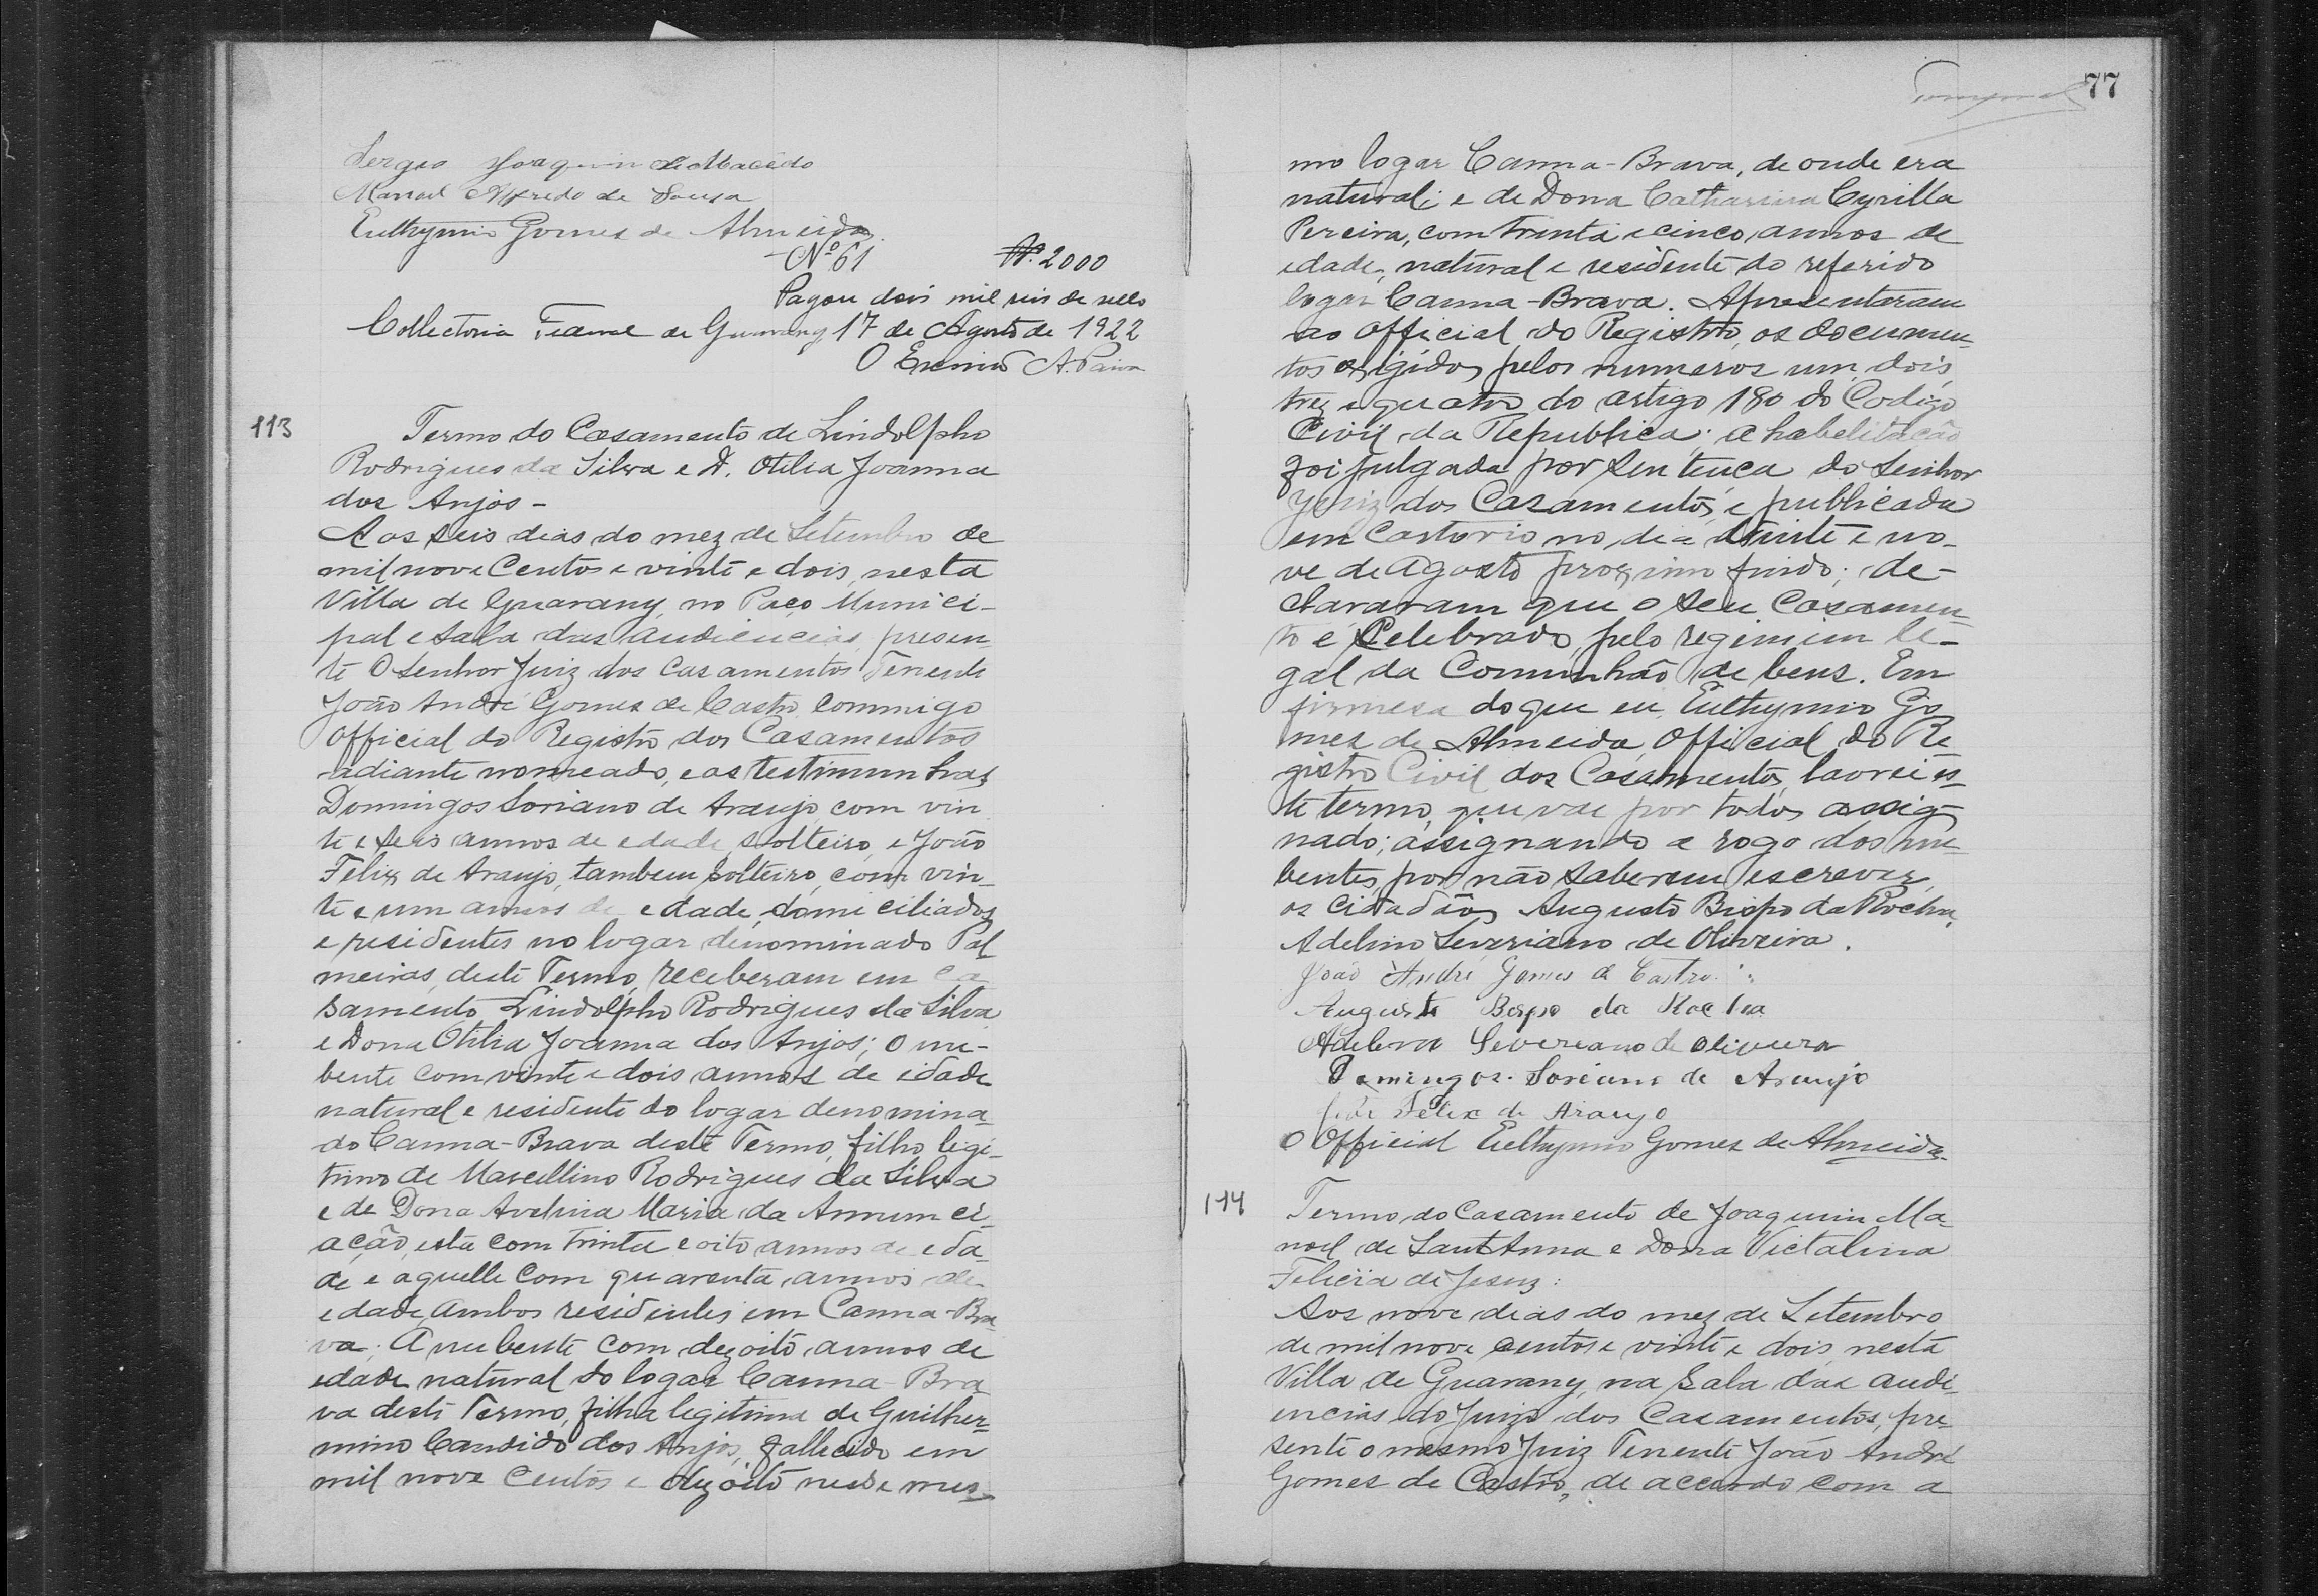 Sergio Joaquim de Macêdo
Manoel Alfredo de Sousa
Euthymio Gomes de Almeida.
Nº 61 R. 2000
Pagou dois mil reis de sello
Collectoria Federal de Guarany 17 de Agosto de 1922
O Escrivão A. Paiva
113
Termo do Casamento de Lindolpho
Rodrigues da Silva e D. Otilia Joanna
dos Anjos -
Aos seis dias do mez de Setembro de
mil nove Centos e vinte e dois, nesta
Villa de Guarany, no Paço Munici-
pal e sala das audiencias, presen-
te O Senhor Juiz dos Casamentos Tenente
João André Gomes de Castro, commigo
Official do Registro dos Casamentos
adiante nomeado, e as testimunhas
Domingos Soriano de Araujo, com vin
te e seis annos de edade, solteiro, e João
Felix de Araujo, tambem solteiro, com vin-
te e um annos de edade, domiciliados
e residentes no logar denominado Pal
meiras, deste Termo, receberam em ca
samento Lindolpho Rodrigues da Silva
e Dona Otilia Joanna dos Anjos; O nu-
bente com vinte e dois annos de idade
natural e residente do logar denomina-
do Canna-Brava deste Termo, filho legi-
timo de Marcellino Rodrigues da Silva
e de Dona Avelina Maria da Annunci-
ação, esta com trinta e oito annos de eda-
de e aquelle com quarenta annos de
edade, ambos residentes em Canna-Bra-
va; A nubente com dezoito annos de
edade natural do logar Canna-Bra
va deste Termo, filha legitima de Guilher-
mino Candido dos Anjos, fallecido em
mil nove Centos e dezoito nesse mes-
77
mo logar Canna-Brava, de onde era
natural; e de Dona Catharina Cyrilla
Pereira, com trinta e cinco annos de
edade, natural e residente do referido
logar Canna-Brava. Apresentaram
ao Official do Registro, os documen-
tos exigidos pelos numeros um, dois,
trez e quatro do artigo 180 do Codigo
Civil da Republica; a habelitação
foi julgada por sentença do Senhor
Juiz dos Casamentos, e publicada
em Cartorio no dia vinte e no-
ve de Agosto proximo findo; de-
clararam que o seu Casamen-
to é Celebrado, pelo regimem le-
gal da Communhão de bens. Em
firmesa do que eu, Euthymio Go
mes de Almeida, Official do Re
gistro Civil dos Casamentos, lavrei es-
te termo, que vae por todos assig-
nado; assignando a rogo dos nu-
bentes, por não saberem escrever,
os Cidadãos Augusto Bispo da Rocha,
Adelino Severiano de Oliveira.
João André Gomes de Castro.
Augusto Bispo da Rocha
Adelino Severiano de Oliveira
Domingos Soriano de Araujo
João Felix de Araujo
O Official Euthymio Gomes de Almeida.
114
Termo do Casamento de Joaquim Ma-
noel de Sant'Anna e Dona Victalina
Felicia de Jesus:
Aos nove dias do mez de Setembro
de mil nove centos e vinte e dois, nesta
Villa de Guarany, na Sala das audi-
encias do Juizo dos Casamentos, pre
sente o mesmo Juiz Tenente João André
Gomes de Castro, de accordo com a